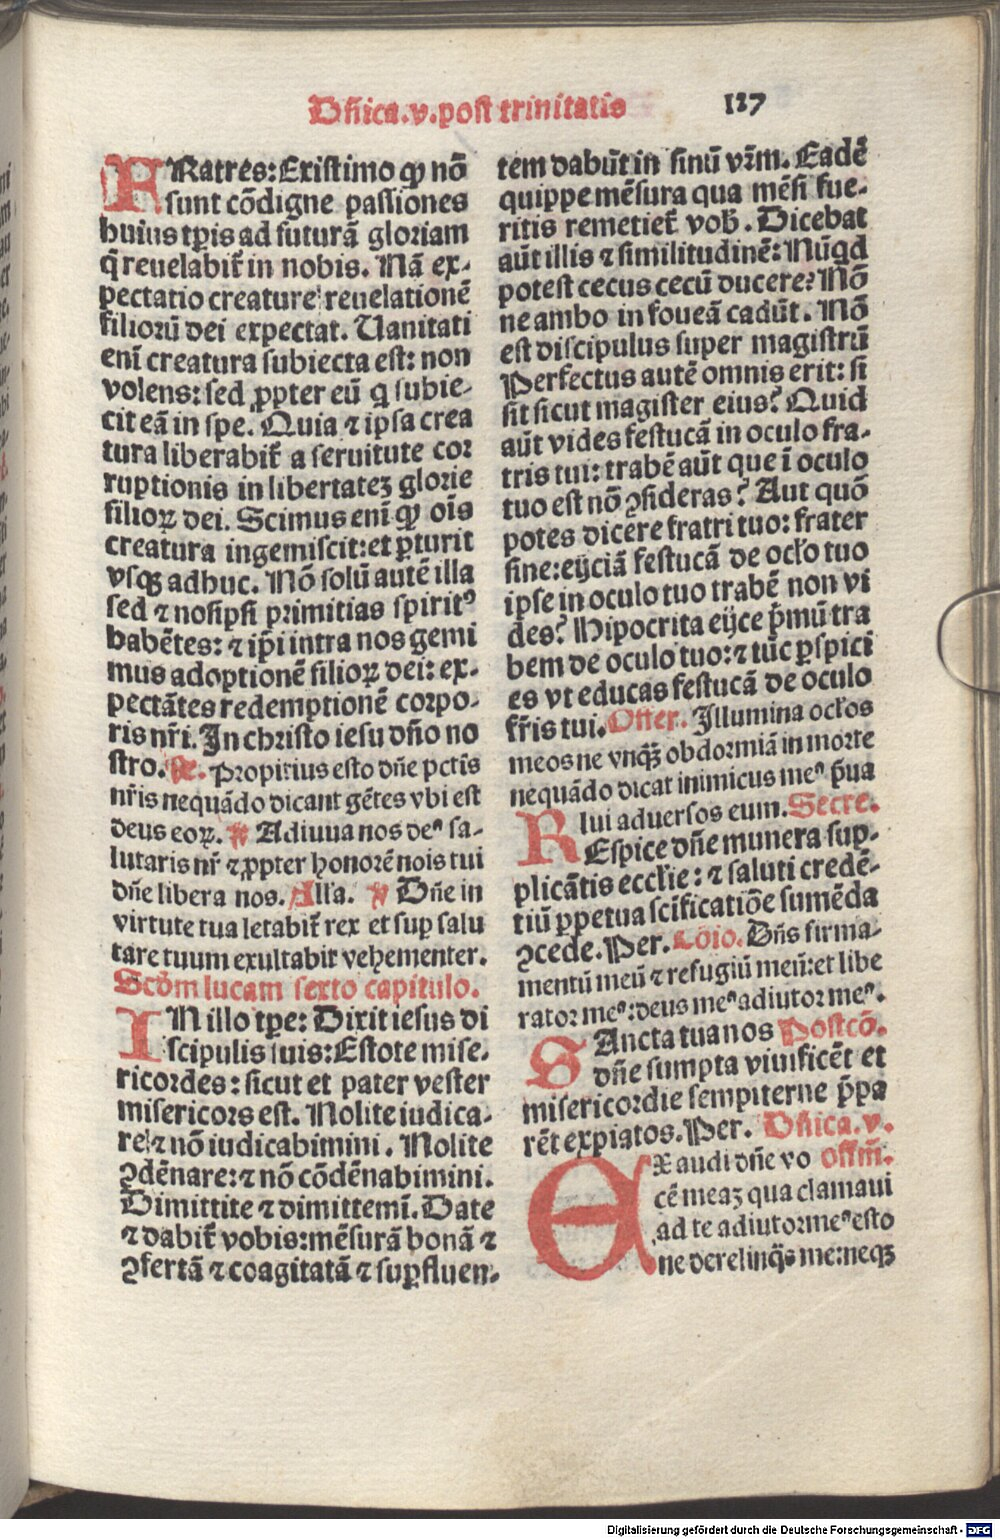 Dñica.v.post trinitatis 127
FRatres: Existimo ꝙ nō
sunt cōdigne passiones
huius tp̄is ad futurā gloriam
q̄ reuelabit̃ in nobis. Nā ex-
pectatio creature reuelationē
filiorū dei expectat. Uanitati
enī creatura subiecta est: non
volens: sed ꝓpter eū q subie-
cit eā in spe. Quia ⁊ ipsa crea
tura liberabit̃ a seruitute cor
ruptionis in libertateʒ glorie
filioꝝ dei. Scimus enī ꝙ oīs
creatura ingemiscit: et ꝑturit
vsqʒ adhuc. Nō solū autē illa
sed ⁊ nosipsi primitias spiritꝰ
habētes: ⁊ ip̄i intra nos gemi
mus adoptionē filioꝝ dei: ex-
pectātes redemptionē corpo-
ris nr̄i. In christo iesu dño no
stro. Propitius esto dñe pctīs
nr̄is nequādo dicant gētes vbi est
deus eoꝝ. ℣ Adiuua nos deꝰ sa-
lutaris nr̄ ⁊ ꝓpter honorē nois tui
dñe libera nos. Alľa. ℣ Dñe in
virtute tua letabit̃ rex et suꝑ salu
tare tuum exultabit vehementer.
Scd̄m lucam sexto capitulo.
IN illo tp̄e: Dixit iesus di
scipulis suis: Estote mise-
ricordes: sicut et pater vester
misericors est. Nolite iudica-
re: ⁊ nō iudicabimini. Nolite
ꝯdēnare: ⁊ nō cōdēnabimini.
Dimittite ⁊ dimittemī. Date
⁊ dabit̃ vobis: mēsurā bonā ⁊
ꝯfertā ⁊ coagitatā ⁊ suꝑfluen-
tem dabūt in sinū vr̄m. Eadē
quippe mēsura qua mēsi fue-
ritis remetiet̃ vob̄. Dicebat
aūt illis ⁊ similitudinē: Nūqd
potest cecus cecū ducere? Nō
ne ambo in foueā cadūt. Nō
est discipulus super magistrū
Perfectus autē omnis erit: si
sit sicut magister eius? Quid
aūt vides festucā in oculo fra-
tris tui: trabē aūt que ī oculo
tuo est nō ꝯsideras? Aut quō
potes dicere fratri tuo: frater
sine: eijciā festucā de ocľo tuo
ipse in oculo tuo trabē non vi
des? Hipocrita eijce p̄mū tra
bem de oculo tuo: ⁊ tūc ꝑspici
es vt educas festucā de oculo
fr̄is tui. Offer. Illumina ocľos
meos ne vnqʒ̄ obdormiā in morte
nequādo dicat inimicus meꝰ p̄ua
lui aduersos eum. Secre.
REspice dñe munera sup-
plicātis eccľie: ⁊ saluti credē-
tiū ꝑpetua scīficatiōe sumēda
ꝯcede. Per. Cōio. Dñs firma-
mentū meū ⁊ refugiū meū: et libe
rator meꝰ: deus meꝰ adiutor meꝰ.
SAncta tua nos Postcō.
dñe sumpta viuificēt et
misericordie sempiterne p̄pa
rēt expiatos. Per. Dñica.v.
EXaudi dñe vo offīm̄.
cē meaʒ qua clamaui
ad te adiutor meꝰ esto
ne derelinq̄s me: neqʒ
Digitalisierung gefördert durch die Deutsche Forschungsgemeinschaft - DFG